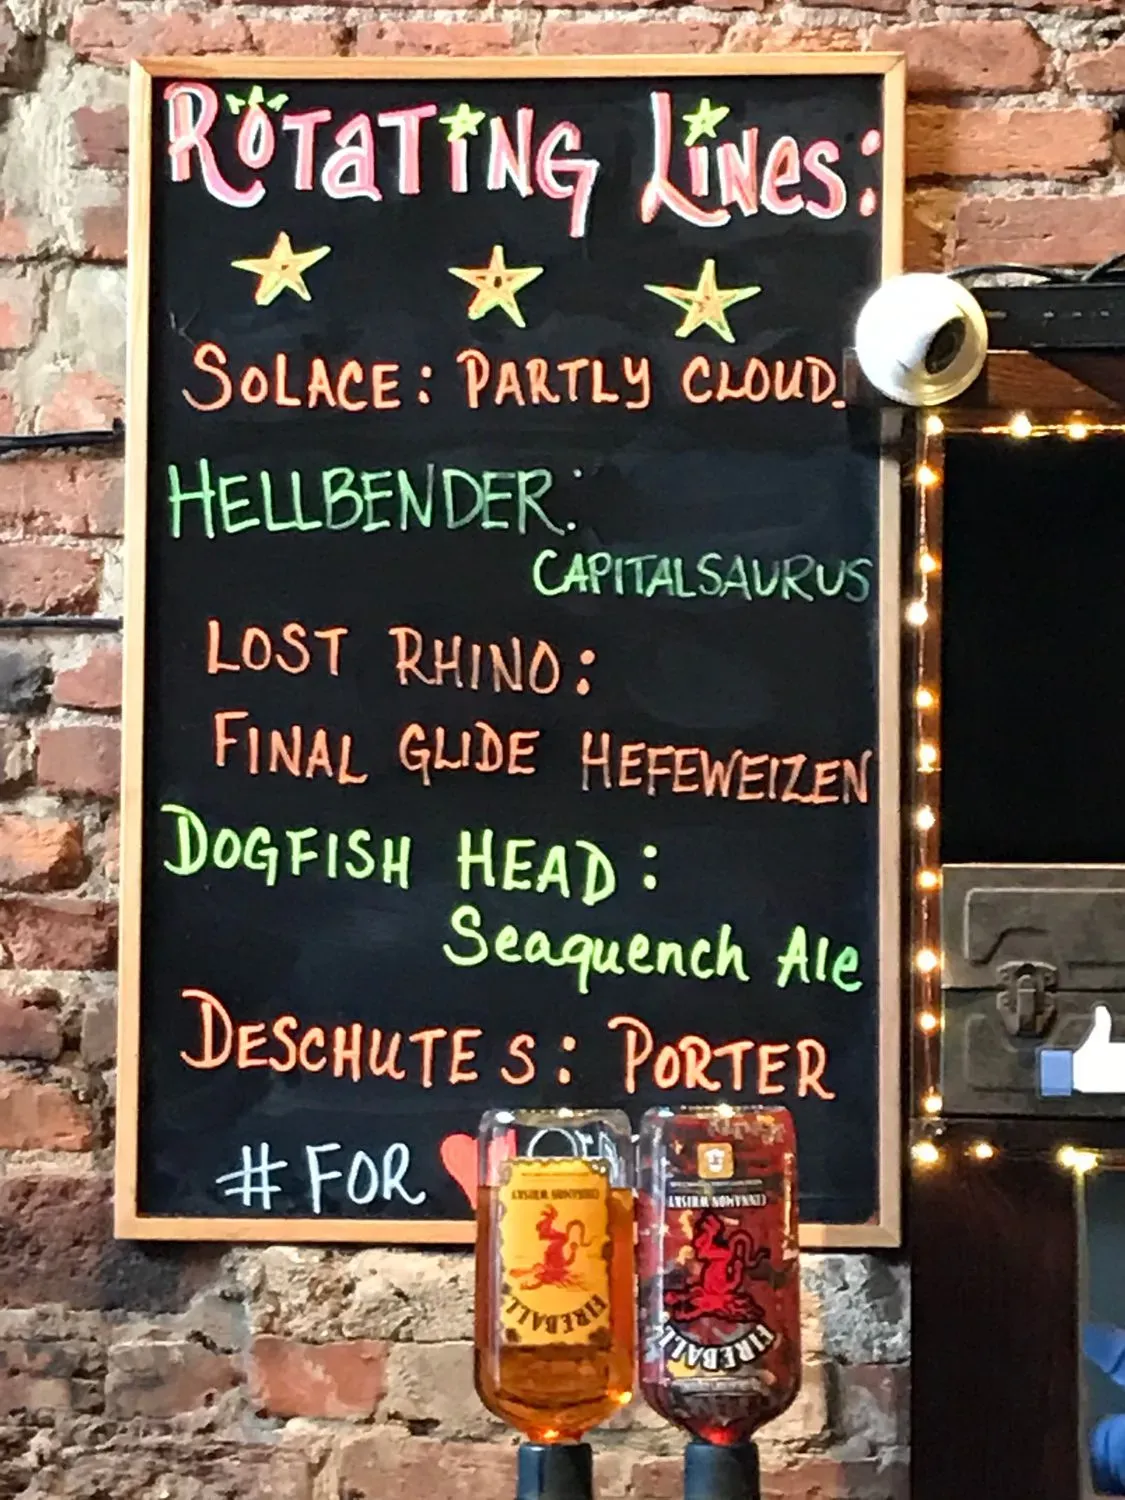 ROTATING LINES:
SOLACE: PARTLY CLOUD
HELLBENDER:
CAPITALSAURUS
LOST RHINO:
FINAL GLIDE HEFEWEIZEN
DOGFISH HEAD:
Seaquench Ale
DESCHUTES: PORTER
#FOR
CINNAMON WHISKY
FIREBALL
CINNAMON WHISKY
FIREBALL